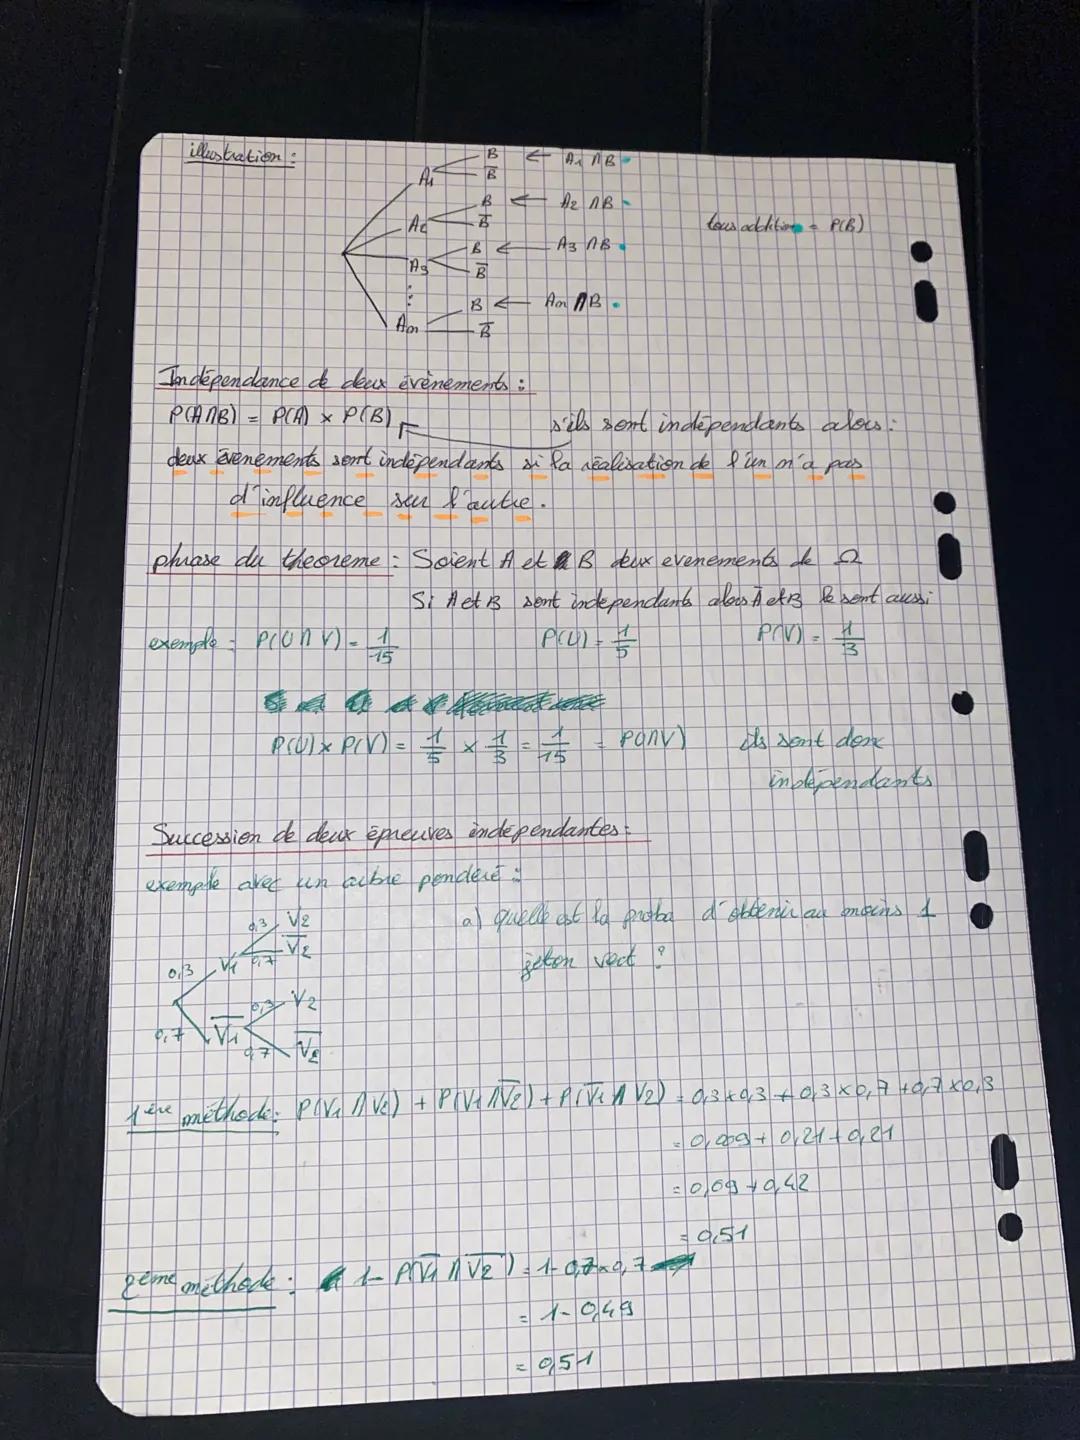 illustration :
B ← A1 ∩ B
A1
B̅
B ← A2 ∩ B
A2
B̅
tous addition = P(B)
B ← A3 ∩ B
A3
B̅
⋮
B ← An ∩ B
An
B̅
Indépendance de deux évènements :
P(A∩B) = P(A) × P(B)
s'ils sont indépendants alors :
deux évenements sont indépendants si la réalisation de l'un n'a pas
d'influence sur l'autre.
phrase du theoreme : Soient A et B deux evenements de Ω
Si A et B sont independants alors A̅ et B le sont aussi
exemple : P(U∩V) = 1/15 P(U) = 1/5 P(V) = 1/3
P(U) × P(V) = 1/5 × 1/3 = 1/15 = P(U∩V) ils sont donc
indépendants
Succession de deux épreuves indépendantes :
exemple avec un arbre pondéré :
a) quelle est la proba d'obtenir au moins 1
jeton vert ?
0,3 V2
V̅2
0,3 V1 0,7
0,3 V2
0,7 V̅1
0,7 V̅2
1ère méthode : P(V1 ∩ V2) + P(V1 ∩ V̅2) + P(V̅1 ∩ V2) = 0,3×0,3 + 0,3×0,7 + 0,7×0,3
= 0,009 + 0,21 + 0,21
= 0,09 + 0,42
= 0,51
2ème méthode : 1 - P(V̅1 ∩ V̅2) = 1 - 0,7×0,7
= 1 - 0,49
= 0,51